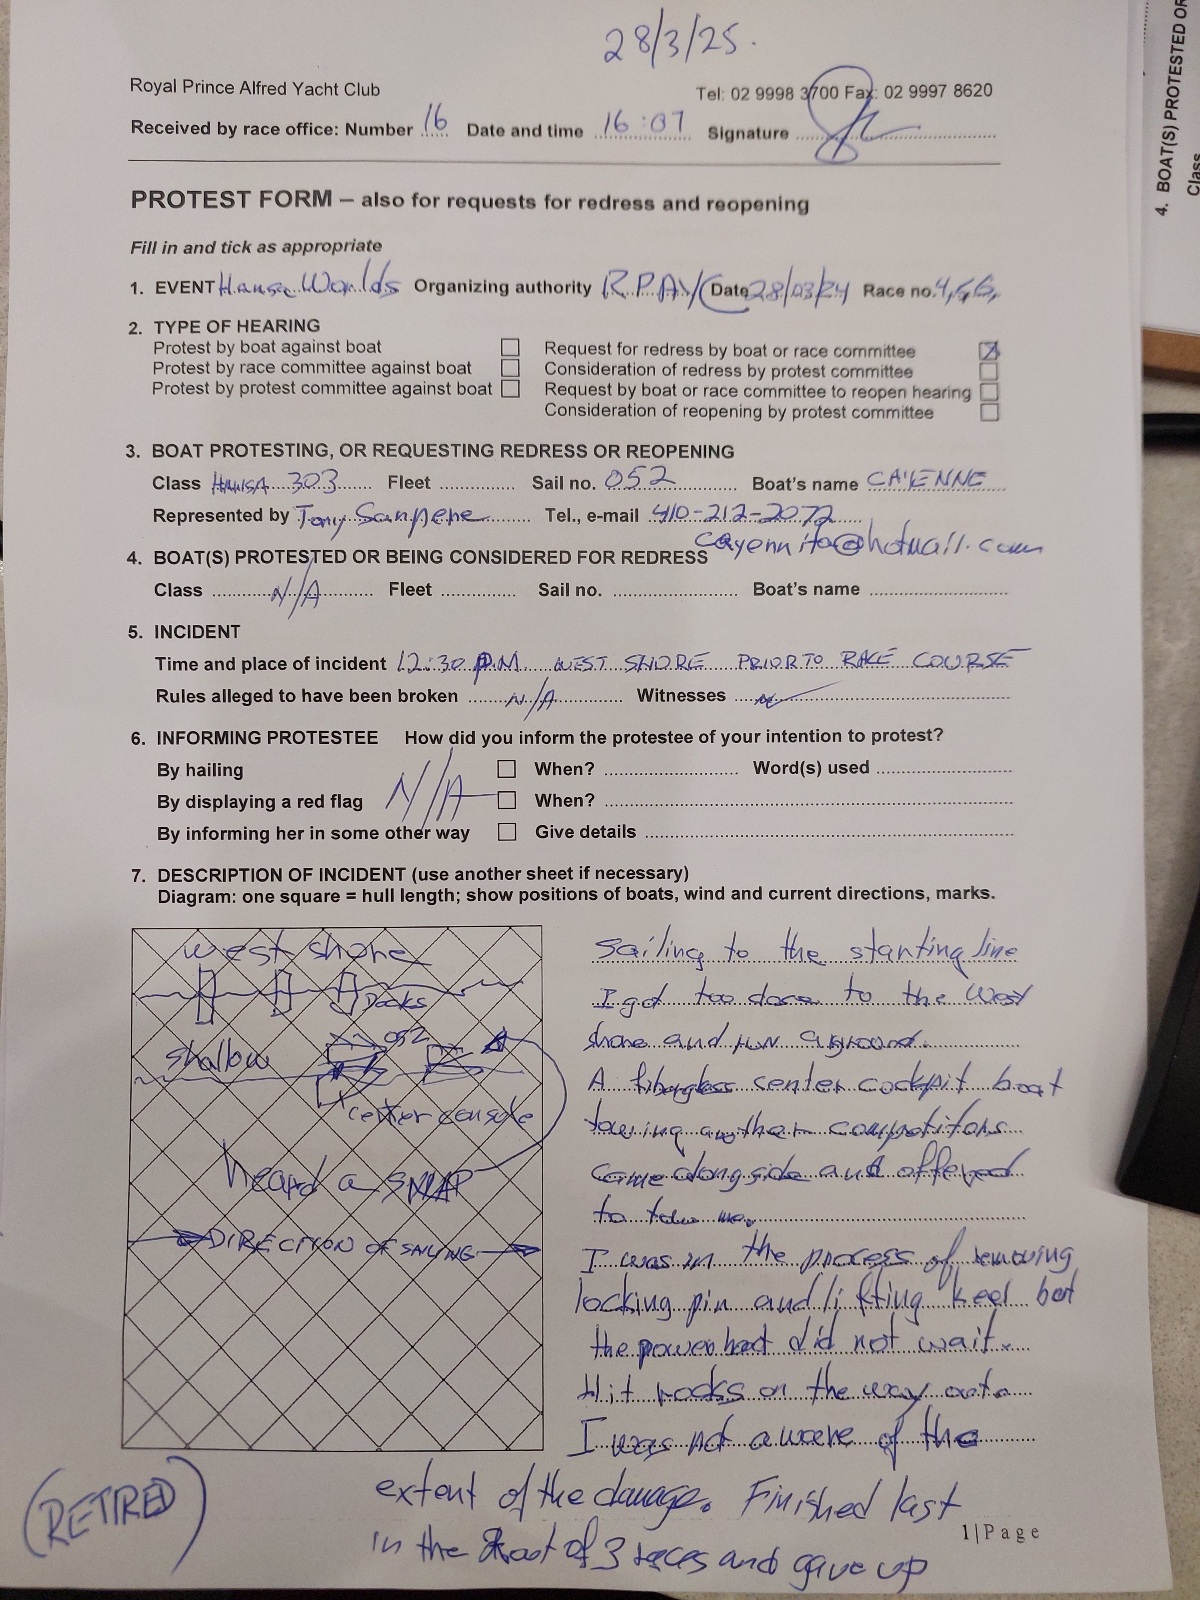 28/3/25.
Royal Prince Alfred Yacht Club
Tel: 02 9998 3700 Fax: 02 9997 8620
Received by race office: Number 16 Date and time 16:07 Signature
PROTEST FORM – also for requests for redress and reopening
Fill in and tick as appropriate
1. EVENT Hansa Worlds Organizing authority R.P.A.Y.C Date 28/03/24 Race no. 4,5,6,
2. TYPE OF HEARING
Protest by boat against boat
Request for redress by boat or race committee X
Protest by race committee against boat
Consideration of redress by protest committee
Protest by protest committee against boat
Request by boat or race committee to reopen hearing
Consideration of reopening by protest committee
3. BOAT PROTESTING, OR REQUESTING REDRESS OR REOPENING
Class HANSA 303 Fleet Sail no. 052 Boat's name CAYENNE
Represented by Tony Sanpere Tel., e-mail 410-212-2072
cayennita@hotmail.com
4. BOAT(S) PROTESTED OR BEING CONSIDERED FOR REDRESS
Class N/A Fleet Sail no. Boat's name
5. INCIDENT
Time and place of incident 12:30 P.M. WEST SHORE PRIOR TO RACE COURSE
Rules alleged to have been broken N/A Witnesses
6. INFORMING PROTESTEE How did you inform the protestee of your intention to protest?
By hailing When? Word(s) used
By displaying a red flag N/A When?
By informing her in some other way Give details
7. DESCRIPTION OF INCIDENT (use another sheet if necessary)
Diagram: one square = hull length; show positions of boats, wind and current directions, marks.
west shore
Docks
052
shallow
center console
heard a SNAP
DIRECTION OF SAILING
sailing to the starting line
I got too close to the West
shore and run aground.
A fiberglass center cockpit boat
towing another competitors
came alongside and offered
to tow me.
I was in the process of removing
locking pin and lifting keel but
the powerboat did not wait.
Hit rocks on the way out.
I was not aware of the
extent of the damage. Finished last
in the first of 3 races and gave up
(RETIRED)
1|Page
4. BOAT(S) PROTESTED OR
Class